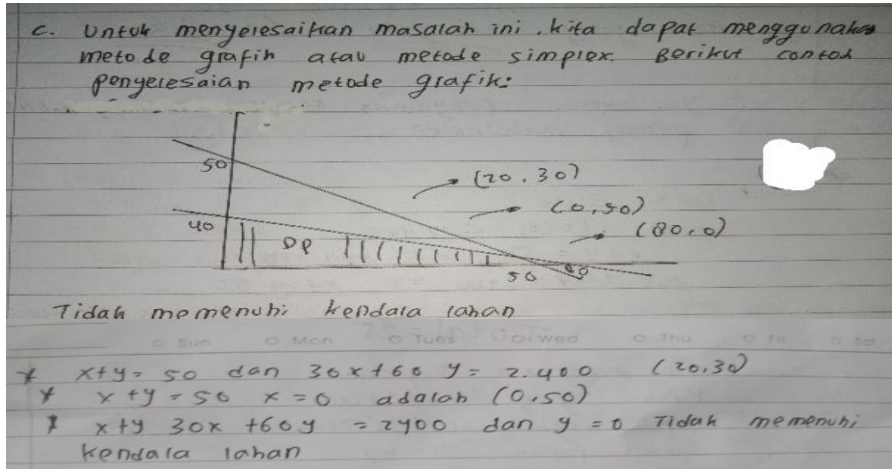 c. Untuk menyelesaikan masalah ini, kita dapat menggunakan
metode grafik atau metode simplex. Berikut contoh
penyelesaian metode grafik:
50
(20,30)
(0,50)
(80,0)
40
DP
50 80
Tidak memenuhi kendala lahan
Sun Mon Tues Wed Thu Fri Sat
* x+y = 50 dan 30x+60y = 2.400 (20,30)
* x+y = 50 x = 0 adalah (0,50)
* x+y 30x +60y = 2400 dan y = 0 Tidak memenuhi
kendala lahan